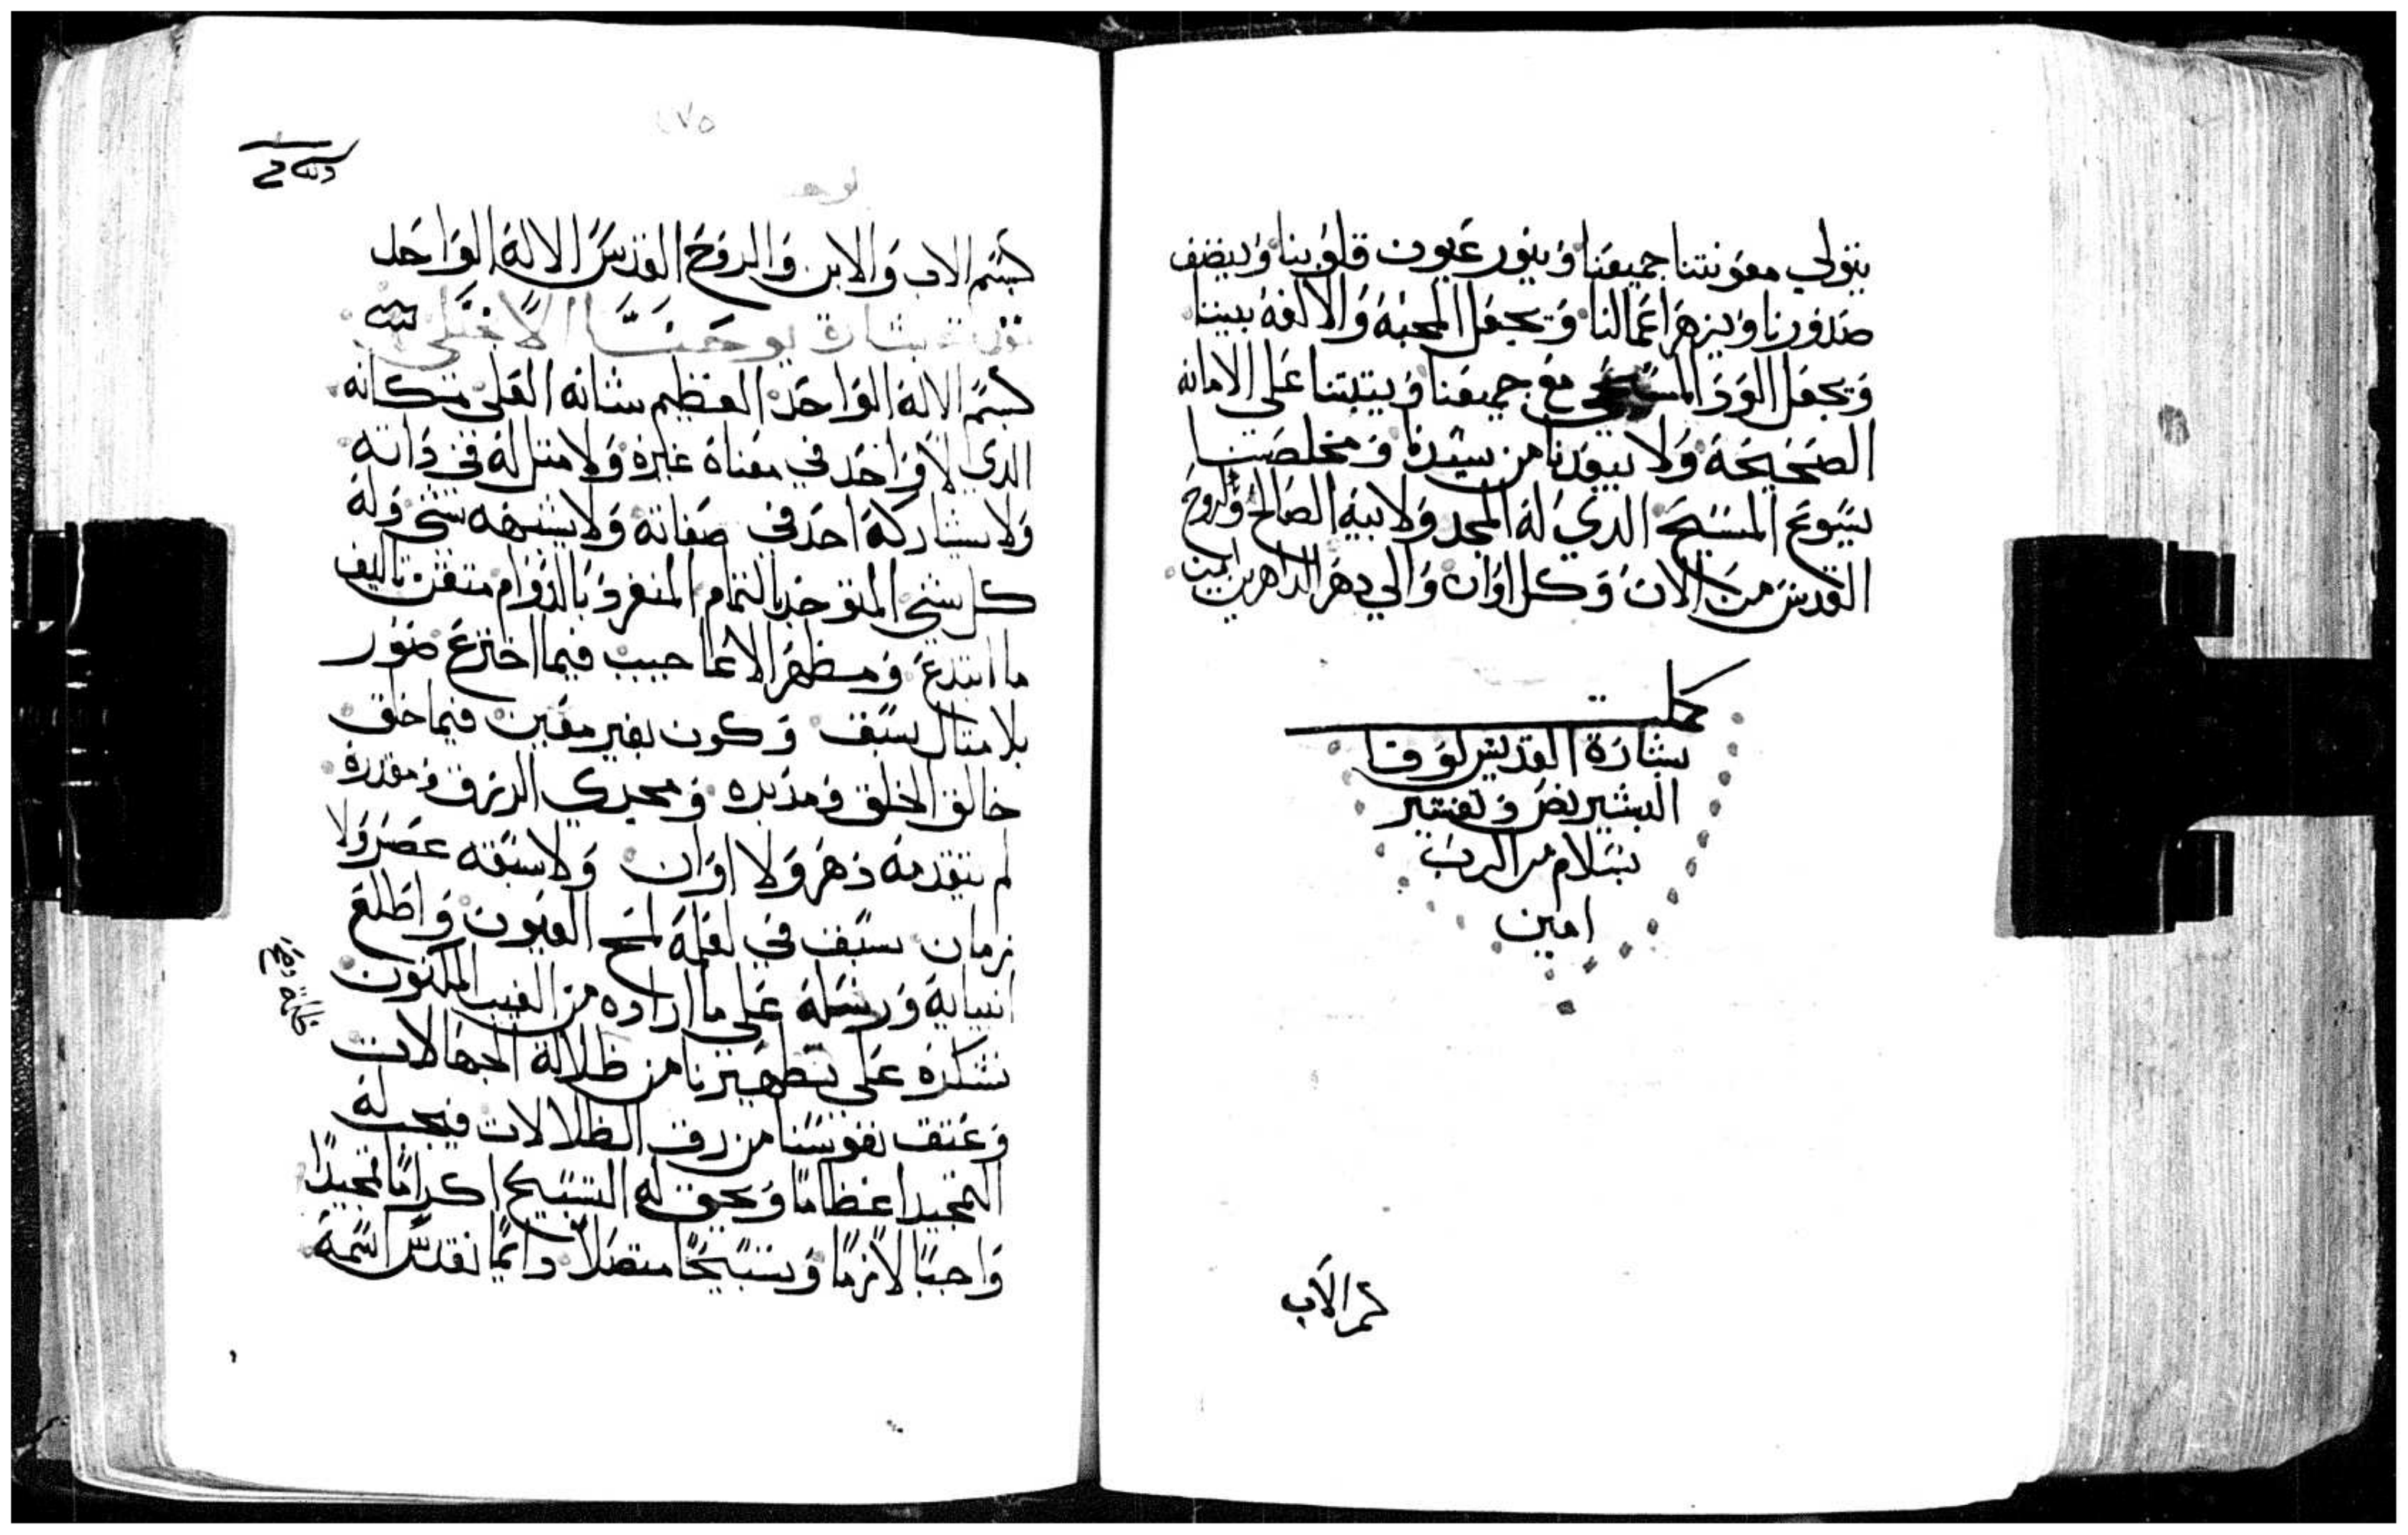 يتولي معونتنا جميعنا وينور عيون قلوبنا وينضف
صدورنا ويزهر اعمالنا ويجعل المحبة والالفة بيننا
ويجعل الود المسيحي مع جميعنا ويثبتنا علي الامانه
الصحيحة ولا يبعدنا من سيدنا ومخلصنا
يسوع المسيح الدي له المجد ولابيه الصالح والروح
القدس من الان وكل اوان والي دهر الداهرين امين
كملت
بشارة القديس لوقا
البشير نص وتفسير
بسلام من الرب
امين
بسم الاب
٢٧٥
بسم الاب والابن والروح القدس الالة الواحد
بشارة يوحنا الانجيلي
بسم الالة الواحد العظيم شانه العلي مكانه
الدي لا واحد في معناة غيرة ولا متل له في داته
ولا يشاركة احد في صفاته ولا يشبهه شي وله
كل شي المتوحد بالتمام المنفرد بالدوام متقن تاليف
ما ابتدع ومظهر الاعاجيب فيما اخترع صور
بلا متال سبق وكون بغير معين فيما خلق
خالق الخلق ومدبره ومجري الرزق ومقدرة
لم يتقدمة دهر ولا اوان ولا سبقه عصر ولا
زمان سبق في لمح العيون واطلع
انبيايه ورسله علي ما اراده من الغيب المكنون
نشكره علي تطهيرنا من ظلالة الجهالات
وعتق نفوسنا من رق الظلالات فيجب له
التمجيد اعظاما ويحق له التسبيح اكراما تمجيدا
واجبا لازما وتسبيحا متصلا دايما تقدس اسمه